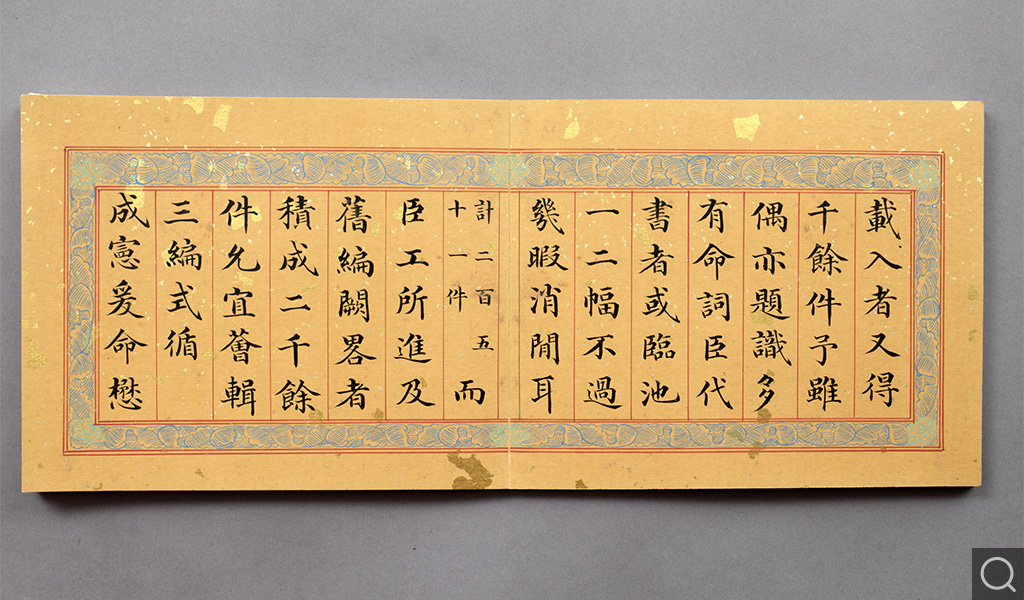 載入者又得
千餘件予雖
偶亦題識多
有命詞臣代
書者或臨池
一二幅不過
幾暇消閒耳
計二百五
十一件
而
臣工所進及
舊編闕畧者
積成二千餘
件允宜薈輯
三編式循
成憲爰命懋